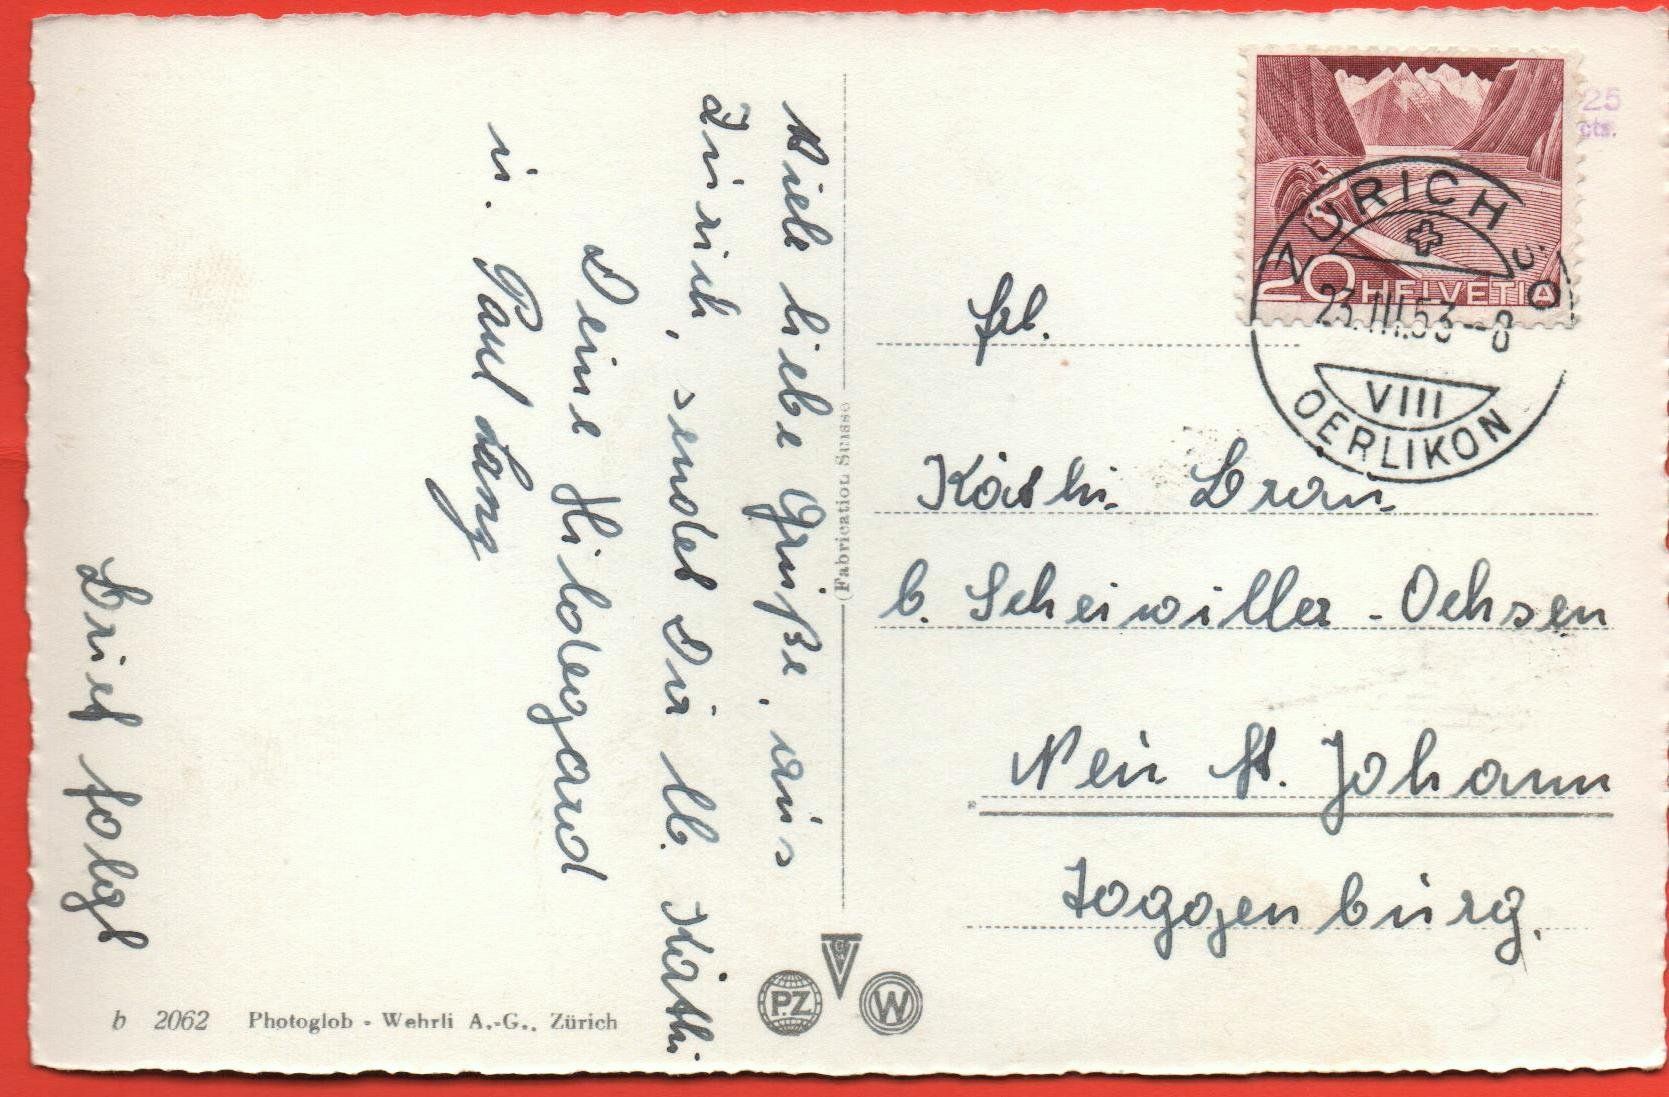 Viele liebe Grüße, aus
Zürich, sendet Dir lb. Käthi
Deine Hildegard
u. Paul Lang
Brief folgt
b 2062 Photoglob - Wehrli A.-G., Zürich
(Fabrication Suisse
PZ
W
25
cts.
20 HELVETIA
ZÜRICH 50
23.III.53--8
VIII
OERLIKON
Frl.
Käthi
b. Scheiwiller - Ochsen
Neu St. Johann
Toggenburg.